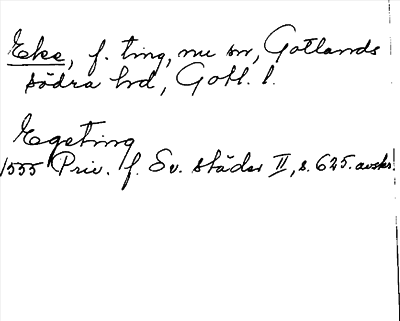 Eke, f. ting, nu sn, Gotlands
södra hd, Gotl. l.
Egeting
1555 Priv. f. Sv. städer II, s. 625. avskr.